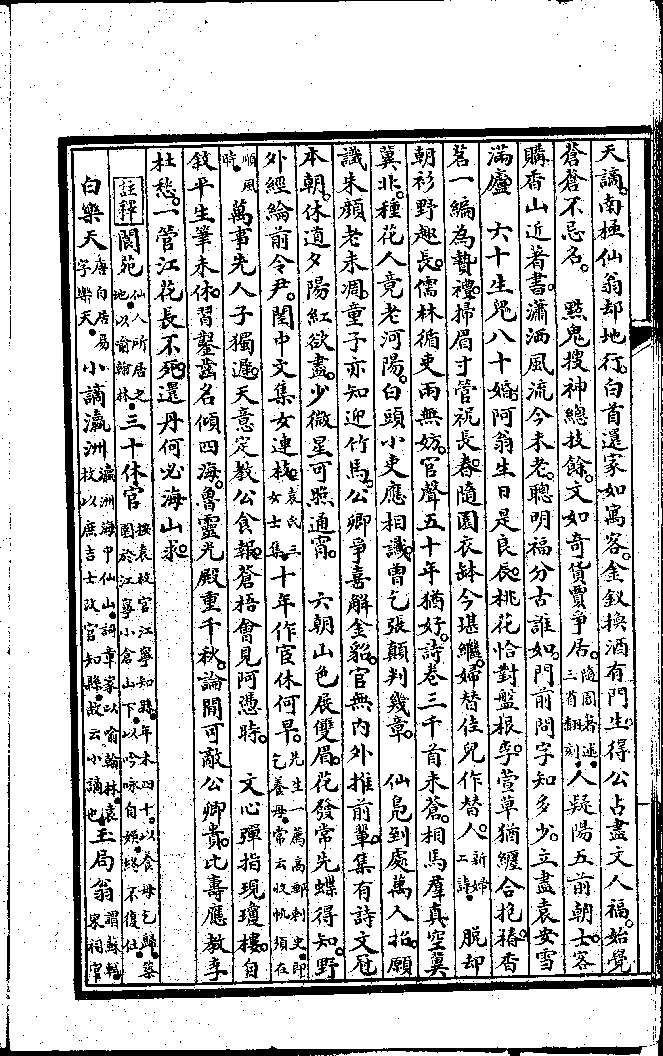 天謫。南極仙翁却地行。白首還家如寓客。金釵換酒有門生。得公占盡文人福。始覺
蒼蒼不忌名。　點鬼搜神總技餘。文如奇貨賈爭居。隨園著述三首翻刻。人疑陽五前朝士。客
購香山近著書。瀟洒風流今未老。聰明福分古誰如。門前問字知多少。立盡袁安雪
滿廬　六十生兒八十婚。阿翁生日是良辰。桃花恰對盤根李。萱草猶纏合抱椿。香
茗一編為贄禮。掃眉寸管祝長春。隨園衣缽今堪繼。婦替佳兒作替人。新婦工詩。　脫却
朝衫野趣長。儒林循吏兩無妨。官聲五十年猶好。詩卷三千首未蒼。相馬羣真空冀
冀北。種花人竟老河陽。白頭小吏應相識。曾乞張顛判幾章。　仙鳧到處萬人招。願
識朱顏老未凋。童子亦知迎竹馬。公卿爭喜解金貂。官無內外推前輩。集有詩文冠
本朝。休道夕陽紅欲盡。少微星可照通宵。　六朝山色展雙眉。花發常先蝶得知。野
外經綸前令尹。閨中文集女連枝。袁氏三女士集。十年作宦休何早。先生一薦高郵刺史。即乞養母。常云收帆須在
順風時。萬事先人子獨遲。天意定教公食報。蒼梧會見阿憑時。　文心彈指現瓊樓。自
敘平生筆未休。習鑿齒名傾四海。魯靈光殿重千秋。論閒可敵公卿貴。比壽應教李
杜愁。一管江花長不死。還丹何必海山求。
註釋　閬苑仙人所居之地。以喻翰林。三十休官按袁枚官江寧知縣。年未四十。以養母乞歸。築園於江寧小倉山下。以吟咏自娛。終不復仕。
白樂天唐白居易字樂天。小謫瀛洲瀛洲海中仙山。詞章家以喻翰林。袁枚以庶吉士改官知縣。故云小謫也。玉局翁謂蘇軾。宋祠官